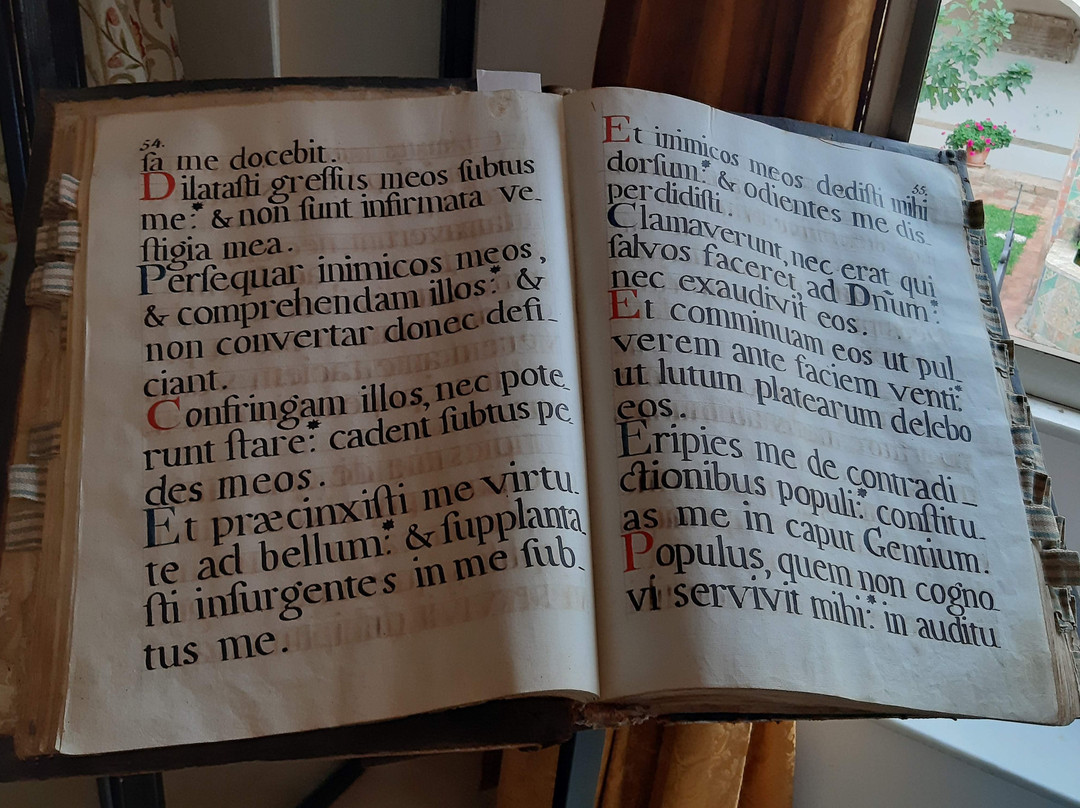 54.
ſa me docebit.
Dilataſti greſſus meos ſubtus
me:* & non ſunt infirmata ve-
ſtigia mea.
Perſequar inimicos meos,
& comprehendam illos:* &
non convertar donec defi-
ciant.
Confringam illos, nec pote
runt ſtare:* cadent ſubtus pe
des meos.
Et præcinxiſti me virtu-
te ad bellum:* & ſupplanta
ſti inſurgentes in me ſub-
tus me.
55.
Et inimicos meos dediſti mihi
dorſum:* & odientes me dis-
perdidiſti.
Clamaverunt, nec erat qui
ſalvos faceret, ad Dn̄um:*
nec exaudivit eos.
Et comminuam eos ut pul
verem ante faciem venti:*
ut lutum platearum delebo
eos.
Eripies me de contradi-
ctionibus populi:* conſtitu-
as me in caput Gentium.
Populus, quem non cogno
vi servivit mihi:* in auditu